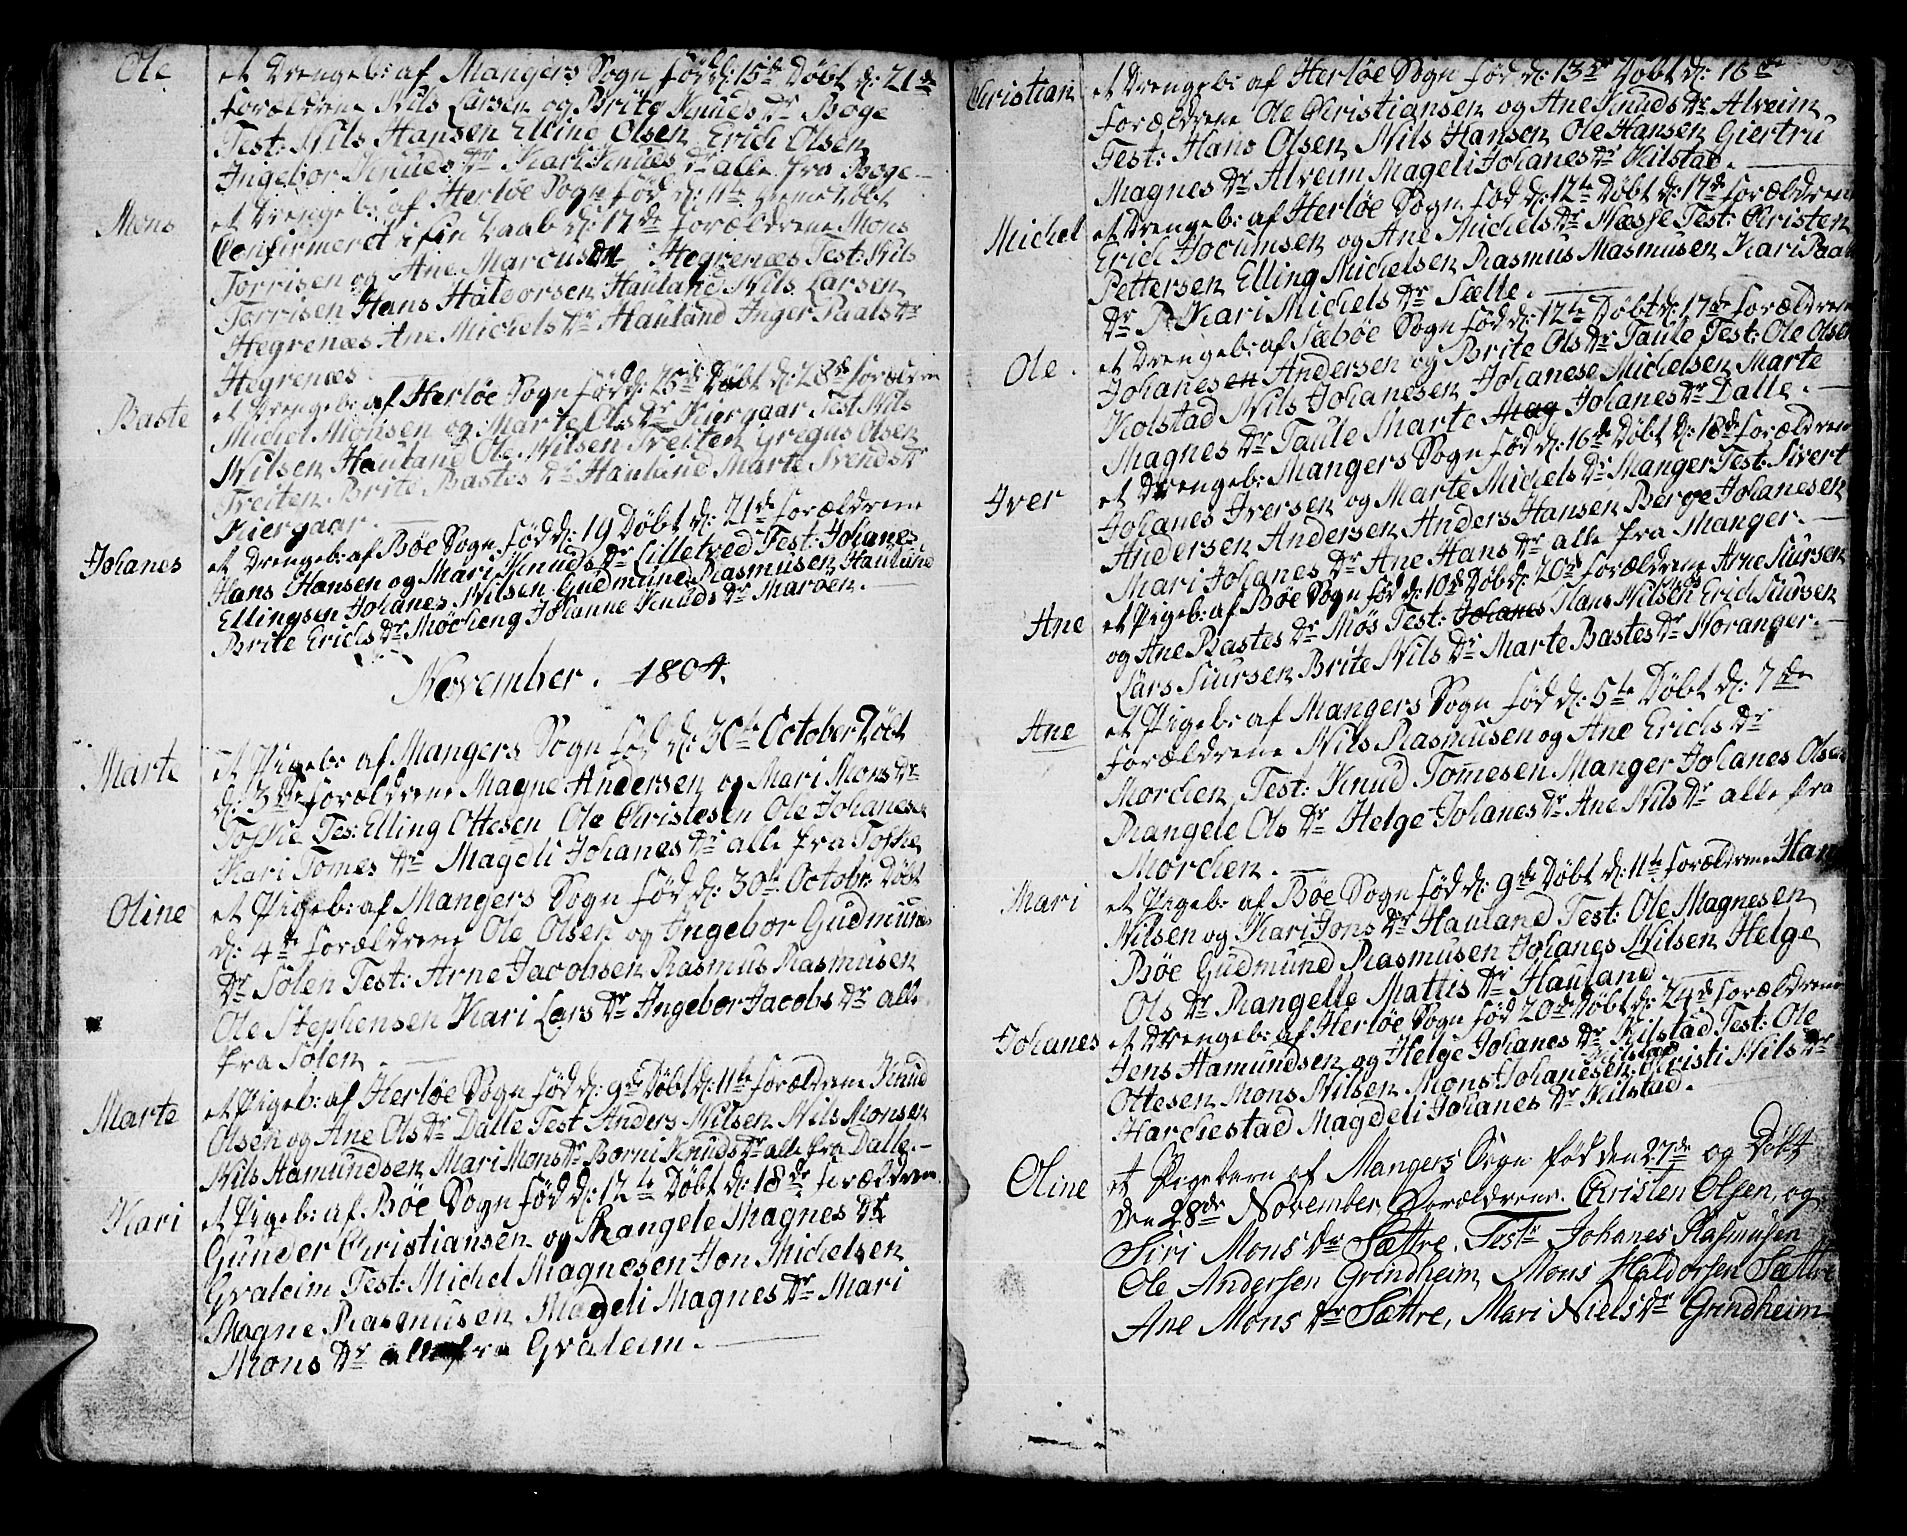 Ole
et Drengeb: af Mangers Sogn fød d: 15de Døbt d: 21de
Forældrene Nils Larsen og Brite Knuds Dr Boge
Test: Nils Hansen Elling Olsen Erich Olsen
Ingebor Knuds Dr Kari Knuds Dr alle fra Boge –
Mons
et Drengeb: af Herløe Sogn fød d: 11te Hiemedøbt
Confirmeret i sin Daab d: 17de Forældrene Mons
Torrisen og Ane Marcus Hegrenæs Test: Nils
Torrisen Hans Haldorsen Hauland Nils Larsen
Hegrenæs Ane Michels Dr Hauland Inger Paals Dr
Hegrenæs.
Baste
et Drengeb: af Herløe Sogn fød d: 25de Døbt d: 28de Forældrene
Michel Monsen og Marte Ols Dr Kiergaar Test Nils
Nilsen Hauland Ole Nilsen Treiten Gregus Olsen
Treiten Brite Bastes Dr Hauland Marte Svends Dr
Kiergaar.
Johanes
et Drengeb: af Bøe Sogn fød d: 19 Døbt d: 21de Forældrene
Hans Hansen og Mari Knuds Dr Lilletved Test: Johanes
Ellingsen Johanes Nilsen Gudmund Rasmusen Hauland
Brite Erichs Dr Møcheng Johanne Knuds Dr Marøen.
November. 1804.
Marte
et Pigeb: af Mangers Sogn fød d: 30te October Døbt
d: 3die Forældrene Magne Andersen og Mari Mons Dr
Toske Tes: Elling Ottesen Ole Christesen Ole Johanesen
Kari Tomes Dr Magdeli Johanes Dr alle fra Toske
Oline
et Pigeb: af Mangers Sogn fød d: 30te Octobr: Døbt
d: 4te Forældrene Ole Olsen og Ingebor Gudmunds
Dr Solen Test: Arne Jacobsen Rasmus Rasmusen
Ole Stephensen Kari Lars Dr Ingebor Jacobs Dr alle
fra Solen.
Marte
et Pigeb: af Herløe Sogn fød d: 9de Døbt d: 11te Forældrene Knud
Olsen og Ane Ols Dr Dalle Test Anders Nilsen Nils Monsen
Nils Hamundsen Mari Mons Dr Borni Knuds Dr alle fra Dalle –
Kari
et Pigeb: af Bøe Sogn fød d: 12te Døbt d: 18de Forældrene
Gunder Christiansen og Rangele Magnes Dr
Gvaleim Test: Michel Magnesen Jon Michelsen
Magne Rasmusen Magdeli Magnes Dr Mari
Mons Dr alle fra Gvaleim.
Christian
et Drengeb: af Herløe Sogn fød d: 13de Døbt d: 16de
Forældrene Ole Christiansen og Ane Knuds Dr Alveim
Test: Hans Olsen Nils Hansen Ole Hansen Giertru
Magnes Dr Alveim Mageli Johanes Dr Kilstad.
Michel
et Drengeb: af Herløe Sogn fød d: 12te Døbt d: 17de Forældrene
Erich Jocumsen og Ane Michels Dr Næsse Test: Christen
Pettersen Elling Michelsen Rasmus Masmusen Kari Paals
Dr Kari Michels Dr Sælle.
Ole.
et Drengeb: af Sæbøe Sogn fød d: 12te Døbt d: 17de Forældrene
Johanes Andersen og Brite Ols Dr Taule Test: Ole Olsen
Kolstad Nils Johanesen Johanese Michelsen Marte
Magnes Dr Taule Marte Mag Johanes Dr Dalle.
Iver
et Drengeb: Mangers Sogn fød d: 16de Døbt d: 18de Forældrene
Johanes Iversen og Marte Michels Dr Manger Test: Sivert
Andersen Andersen Anders Hansen Berge Johanesen
Mari Johanes Dr Ane Hans Dr alle fra Manger.
Ane
et Pigeb: af Bøe Sogn fød d: 10de Døbt d: 20de Forældrene Arne Siursen
og Ane Bastes Dr Møs Test: Johanes Hans Nilsen Møs Erich Siursen
Lars Siursen Brite Nils Dr Marte Bastes Dr Noranger –
Ane
et Pigeb: af Mangers Sogn fød d: 5te Døbt d: 7de
Forældrene Nils Rasmusen og Ane Erichs Dr
Morchen Test: Knud Tomesen Manger Johanes Olsen
Rangele Ols Dr Helge Johanes Dr Ane Nils Dr alle fra
Morchen.
Mari
et Pigeb: af Bøe Sogn fød d: 9de Døbt d: 11te Forældrene Hans
Nilsen og Kari Jons Dr Hauland Test: Ole Magnesen
Bøe Gudmund Rasmusen Johanes Nilsen Helge
Ols Dr Rangelle Mattis Dr Hauland
Johanes
et Drengeb: af Herløe Sogn fød 20de Døbt d: 24de Forældrene
Jens Hamundsen og Helge Johanes Dr Kilstad Test: Ole
Ottesen Mons Nilsen Mons Johanesen Kilstad Christi Nils Dr
Harchestad Magdeli Johanes Dr Kilstad.
Oline
et Pigebarn af Mangers Sogn fød den 27de og Døbt
den 28de November, Forældrene. Christen Olsen, og
Siri Mons Dr Sættre, Test: Johanes Rasmusen
Ole Andersen Grindheim, Mons Haldorsen Sættre
Ane Mons Dr Sættre, Mari Niels Dr Grindheim